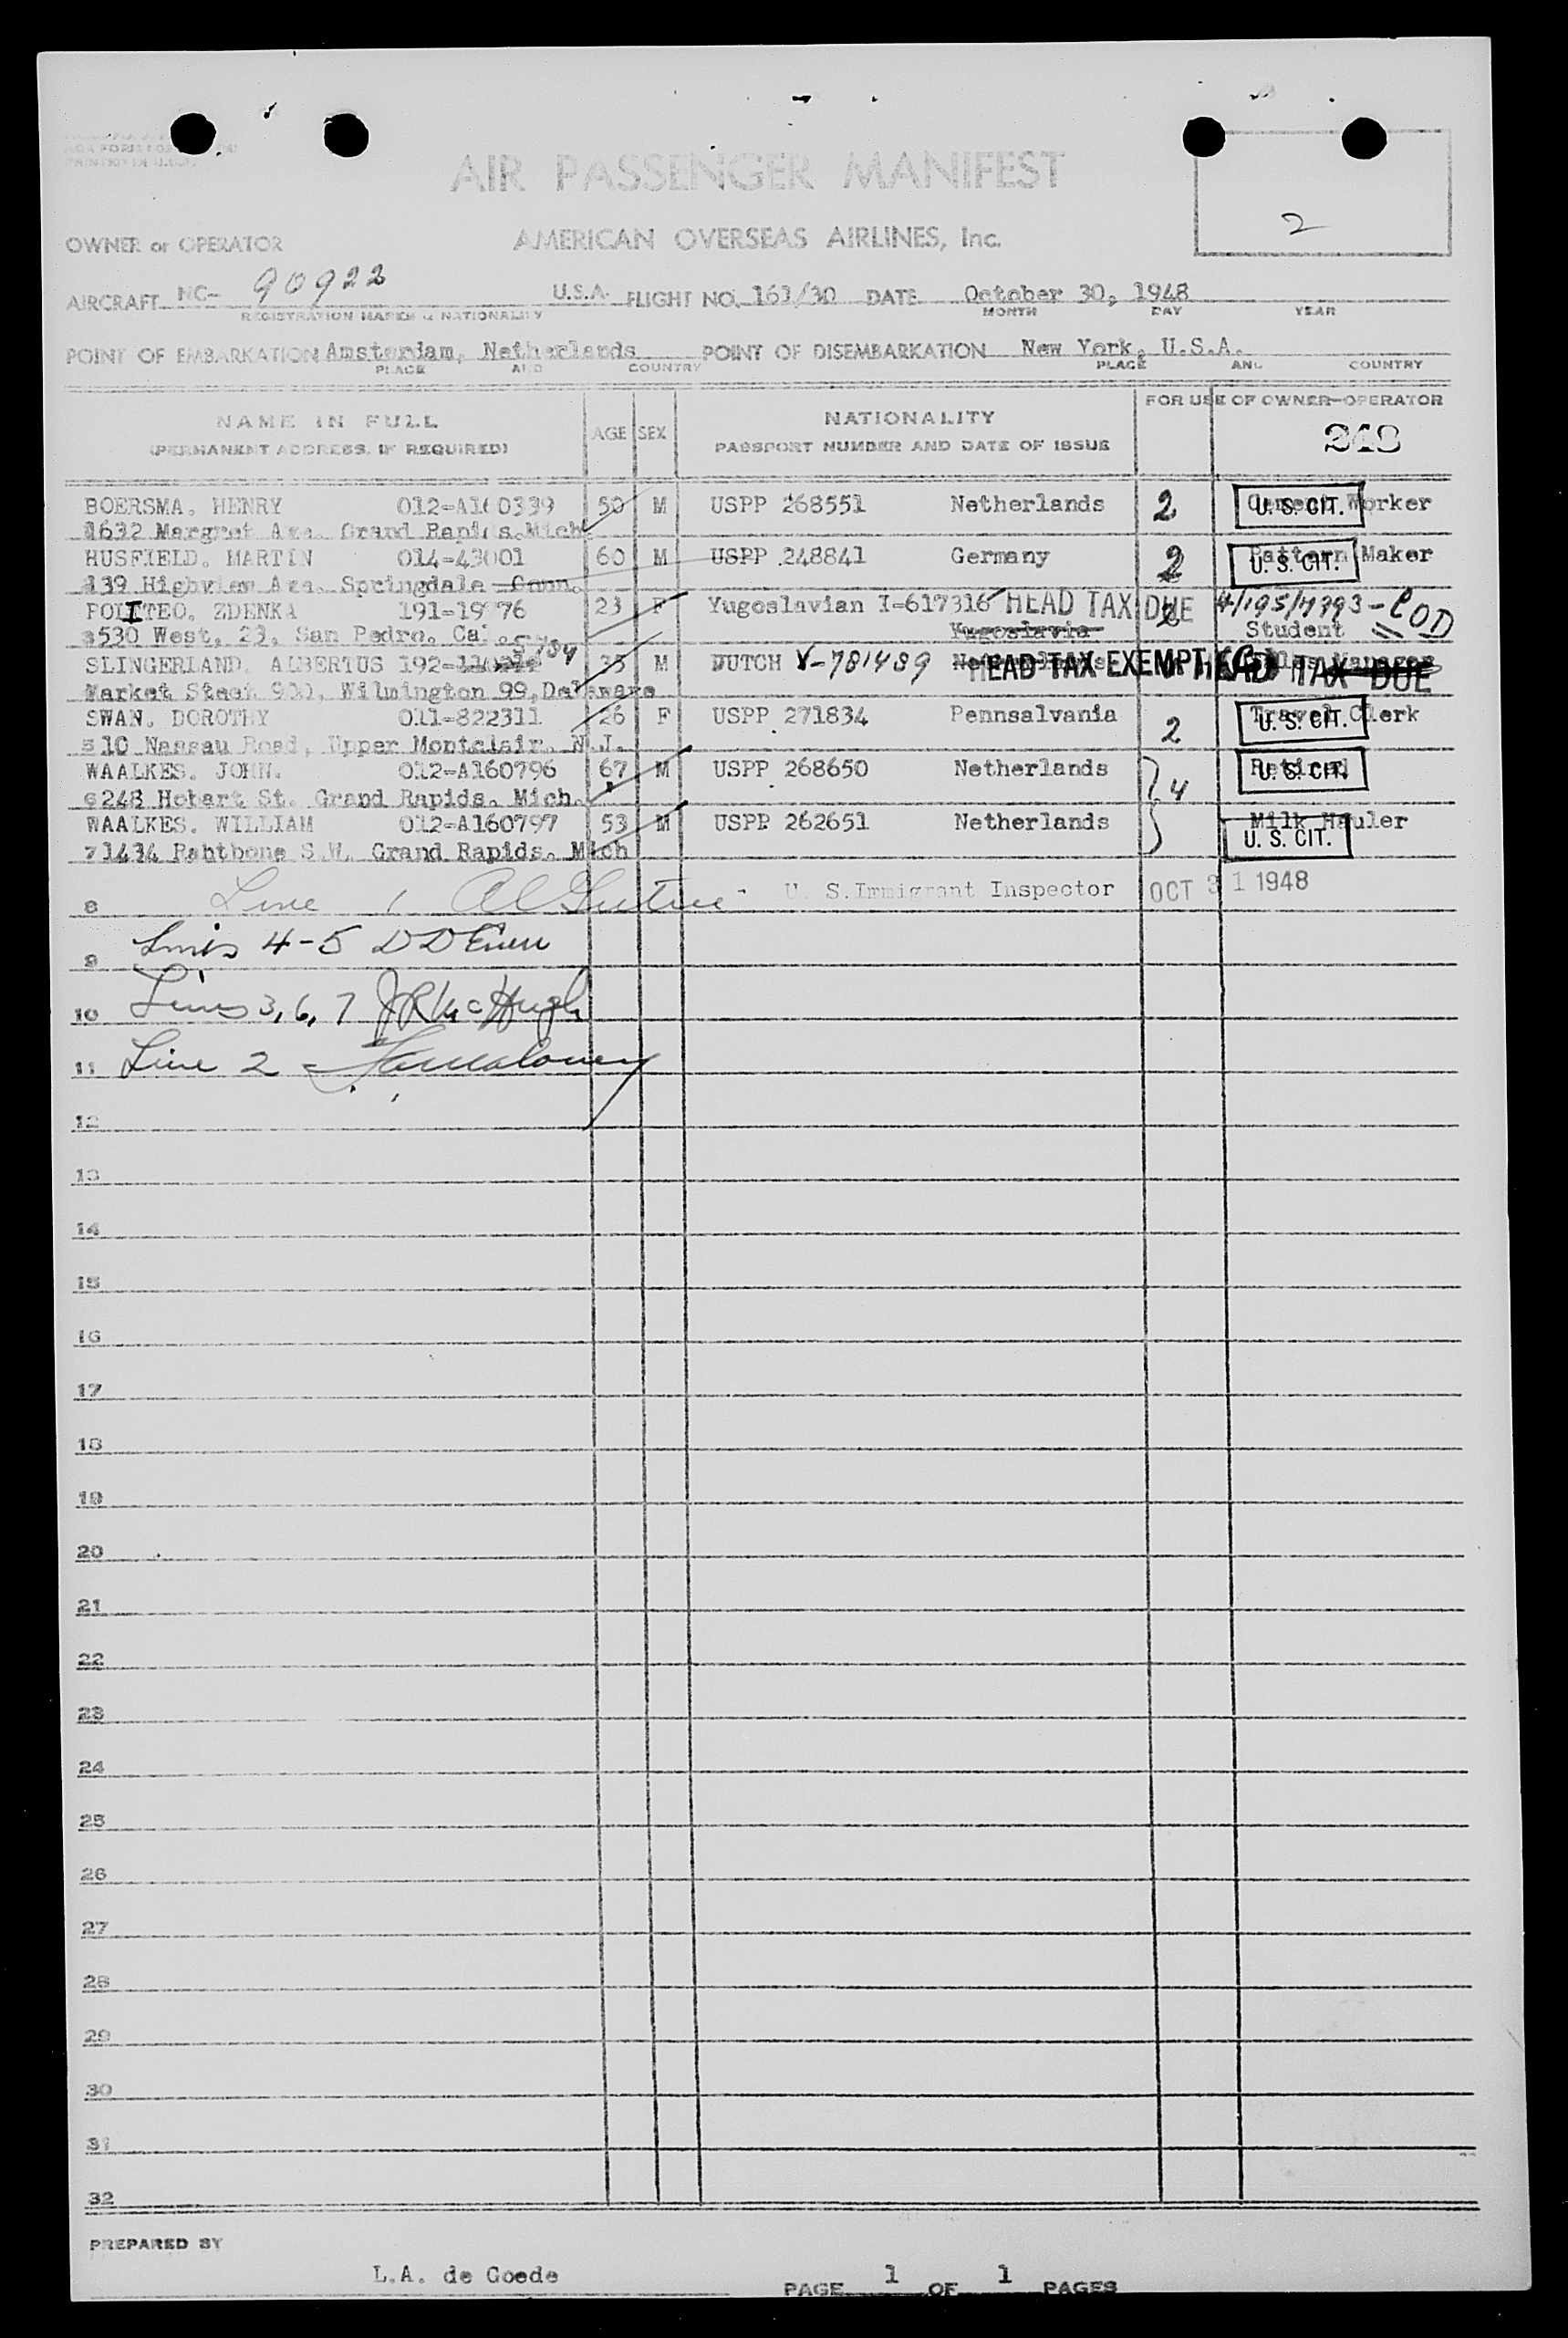 PRINTED IN U.S.A.
AIR PASSENGER MANIFEST
2
OWNER or OPERATOR AMERICAN OVERSEAS AIRLINES, Inc.
AIRCRAFT NC- 90922 U.S.A. FLIGHT NO. 161/30 DATE October 30, 1948
REGISTRATION MARKS & NATIONALITY MONTH DAY YEAR
POINT OF EMBARKATION Amsterdam, Netherlands POINT OF DISEMBARKATION New York, U.S.A.
PLACE AND COUNTRY PLACE AND COUNTRY
NAME IN FULL AGE SEX NATIONALITY FOR USE OF OWNER-OPERATOR
(PERMANENT ADDRESS, IF REQUIRED) PASSPORT NUMBER AND DATE OF ISSUE 248
BOERSMA. HENRY 012-A160339 50 M USPP 268551 Netherlands 2 Cement Worker U. S. CIT.
1632 Margret Ave. Grand Rapids. Mich.
HUSFIELD. MARTIN 014-43001 60 M USPP 248841 Germany 2 Pattern Maker U. S. CIT.
139 Highview Ave. Springdale Conn.
POLITEO. ZDENKA 191-19 76 23 F Yugoslavian I-617316 HEAD TAX DUE 4/195/7393-COD
3 530 West, 23, San Pedro. Cal. Yugoslavia Student
SLINGERLAND. ALBERTUS 192- 5784 35 M DUTCH V-781489 Netherlands HEAD TAX EXEMPT HEAD TAX DUE Sales Manager
Market Steet 900, Wilmington 99, Delaware
SWAN. DOROTHY 011-822311 26 F USPP 271834 Pennsalvania 2 Travel Clerk U. S. CIT.
5 10 Nassau Road, Upper Montclair. N.J.
WAALKES. JOHN. 012-A160796 67 M USPP 268650 Netherlands 4 Retired U. S. CIT.
6 248 Hobart St. Grand Rapids. Mich.
WAALKES. WILLIAM 012-A160797 53 M USPP 262651 Netherlands Milk Hauler U. S. CIT.
7 1434 Rahtbone S.W. Grand Rapids. Mich
8 Line 1 U. S. Immigrant Inspector OCT 31 1948
9 Lines 4-5
10 Lines 3, 6, 7 JR McHugh
11 Line 2
12
13
14
15
16
17
18
19
20
21
22
23
24
25
26
27
28
29
30
31
32
PREPARED BY
L.A. de Goede PAGE 1 OF 1 PAGES